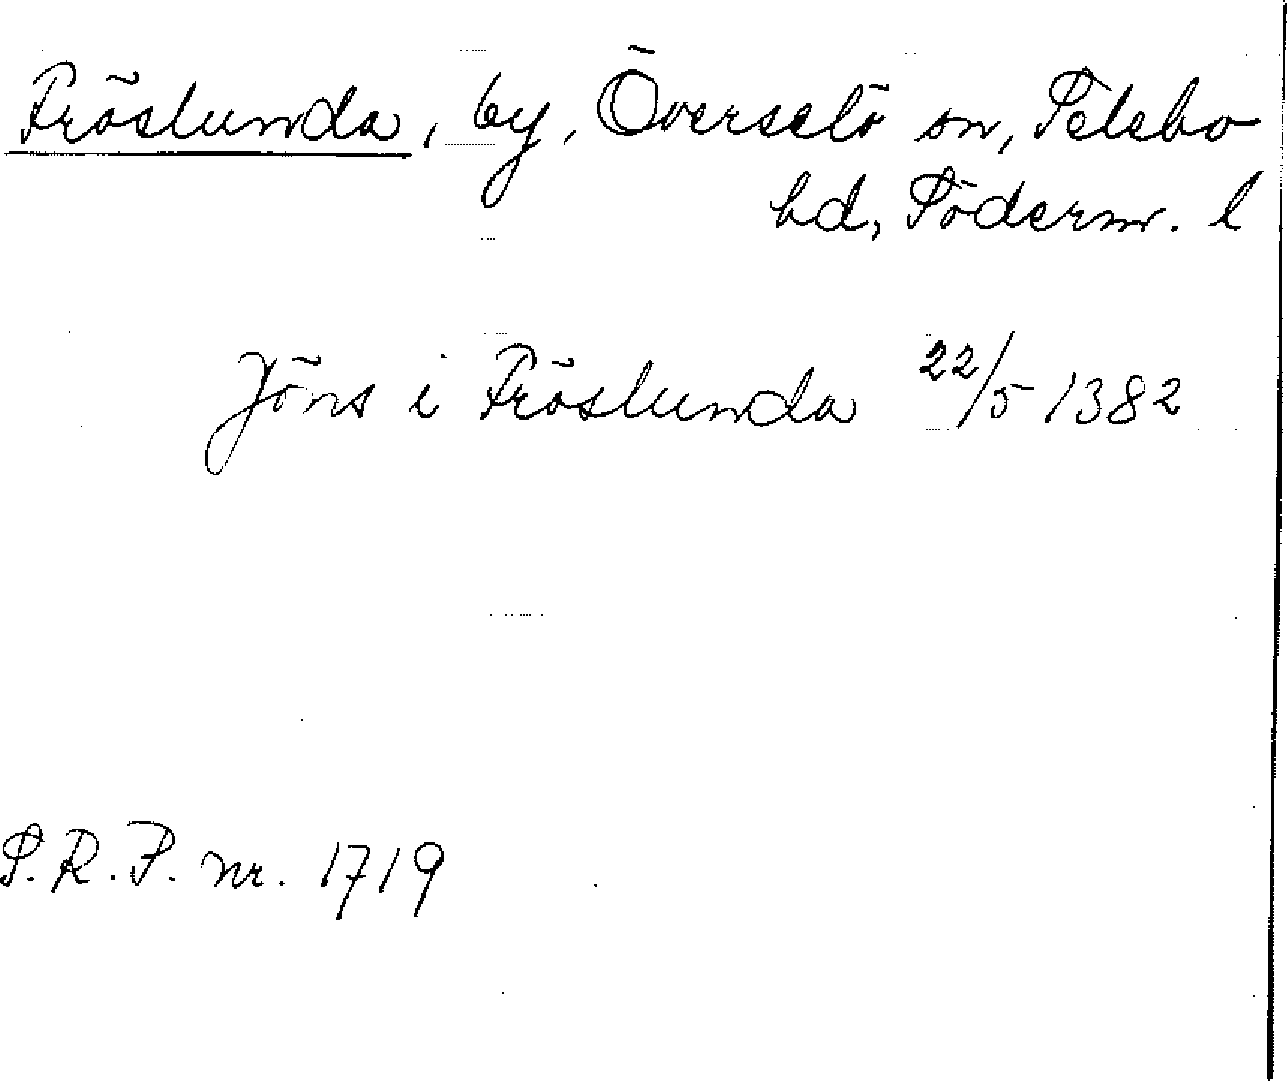 Fröslunda, by, Överselö sn, Selebo
hd, Söderm. l
Jöns i Fröslunda 22/5 1382
S.R.P. nr. 1719